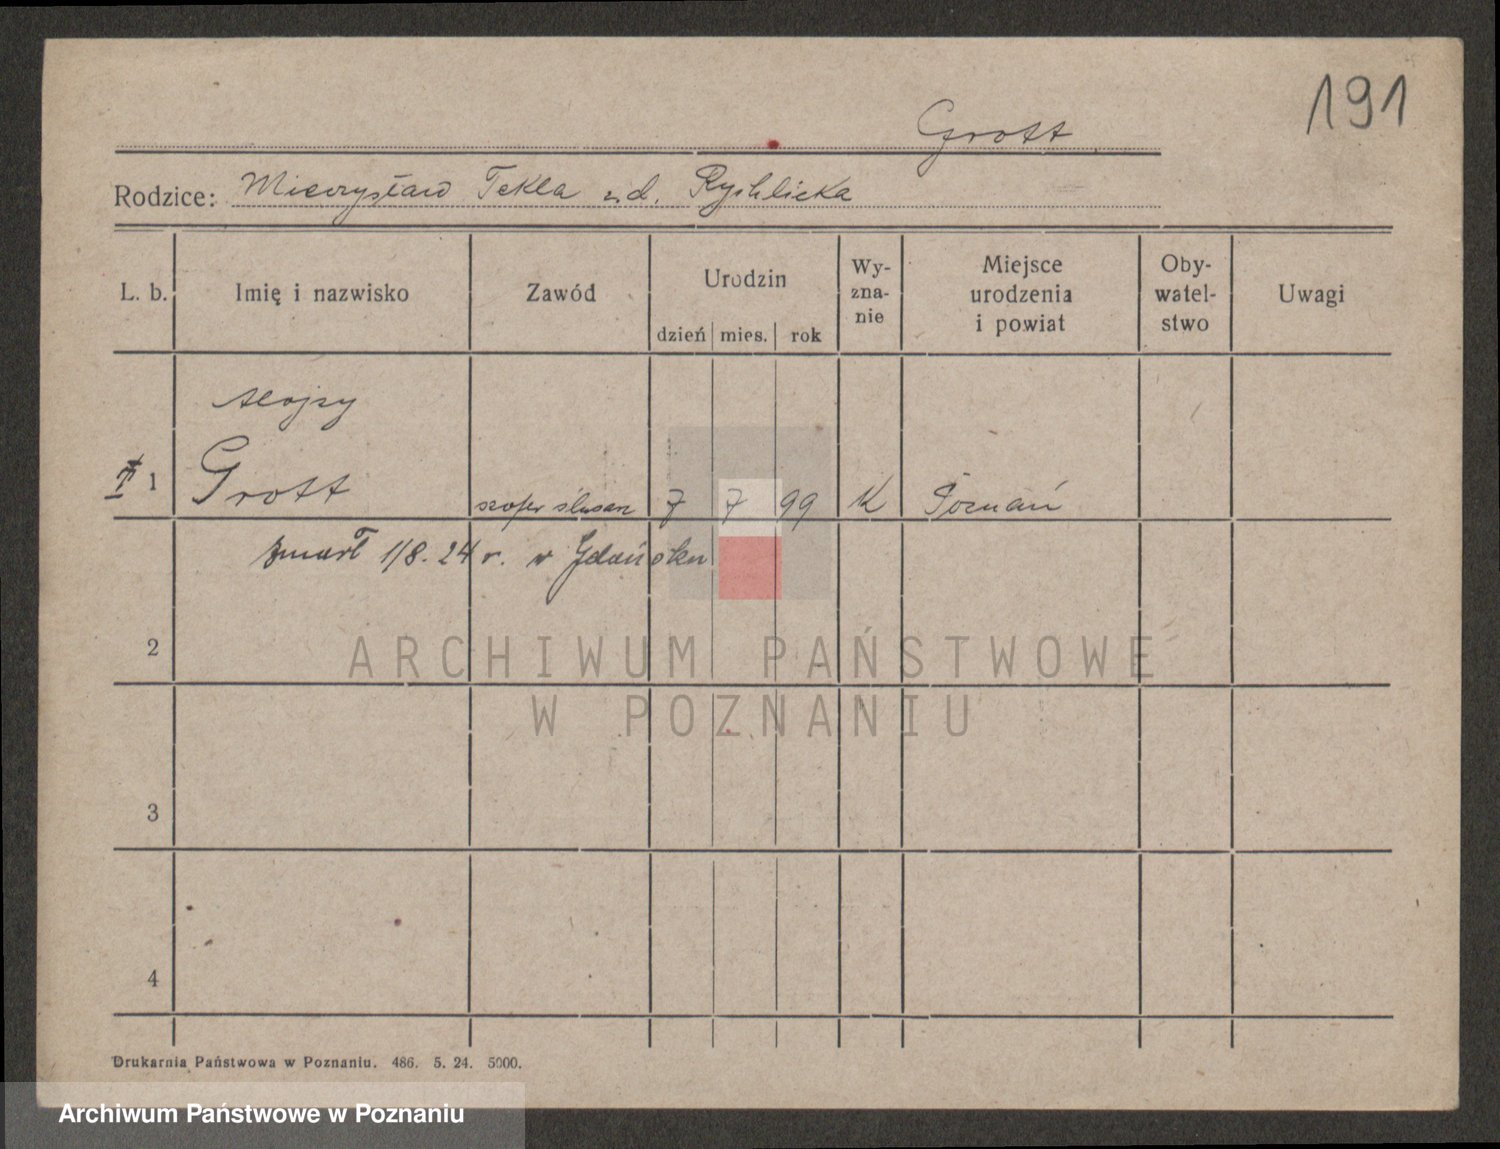 191
Grott
Rodzice: Mieczysław Tekla z d. Rychlicka
L. b. Imię i nazwisko Zawód Urodzin dzień mies. rok Wy-zna-nie Miejsce urodzenia i powiat Oby-watel-stwo Uwagi
Alojzy
1 Grott szofer ślusarz 7 7 99 K Poznań
zmarł 1/8. 24 r. w Gdańsku
2
ARCHIWUM PAŃSTWOWE
W POZNANIU
3
4
Drukarnia Państwowa w Poznaniu. 486. 5. 24. 5000.
Archiwum Państwowe w Poznaniu